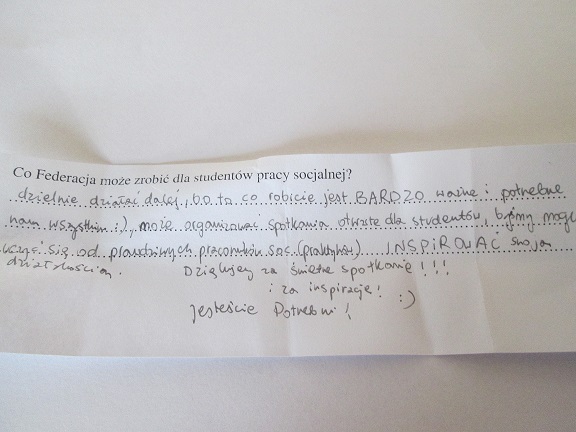 Co Federacja może zrobić dla studentów pracy socjalnej?
dzielnie działać dalej, bo to co robicie jest BARDZO ważne i potrzebne
nam wszystkim :), może organizować spotkania otwarte dla studentów, byśmy mogli
uczyć się od prawdziwych pracowników soc. (praktyków) INSPIROWAĆ swoją
działalnością.
Dziękuję za świetne spotkanie!!!
i za inspirację!
Jesteście Potrzebni! :)